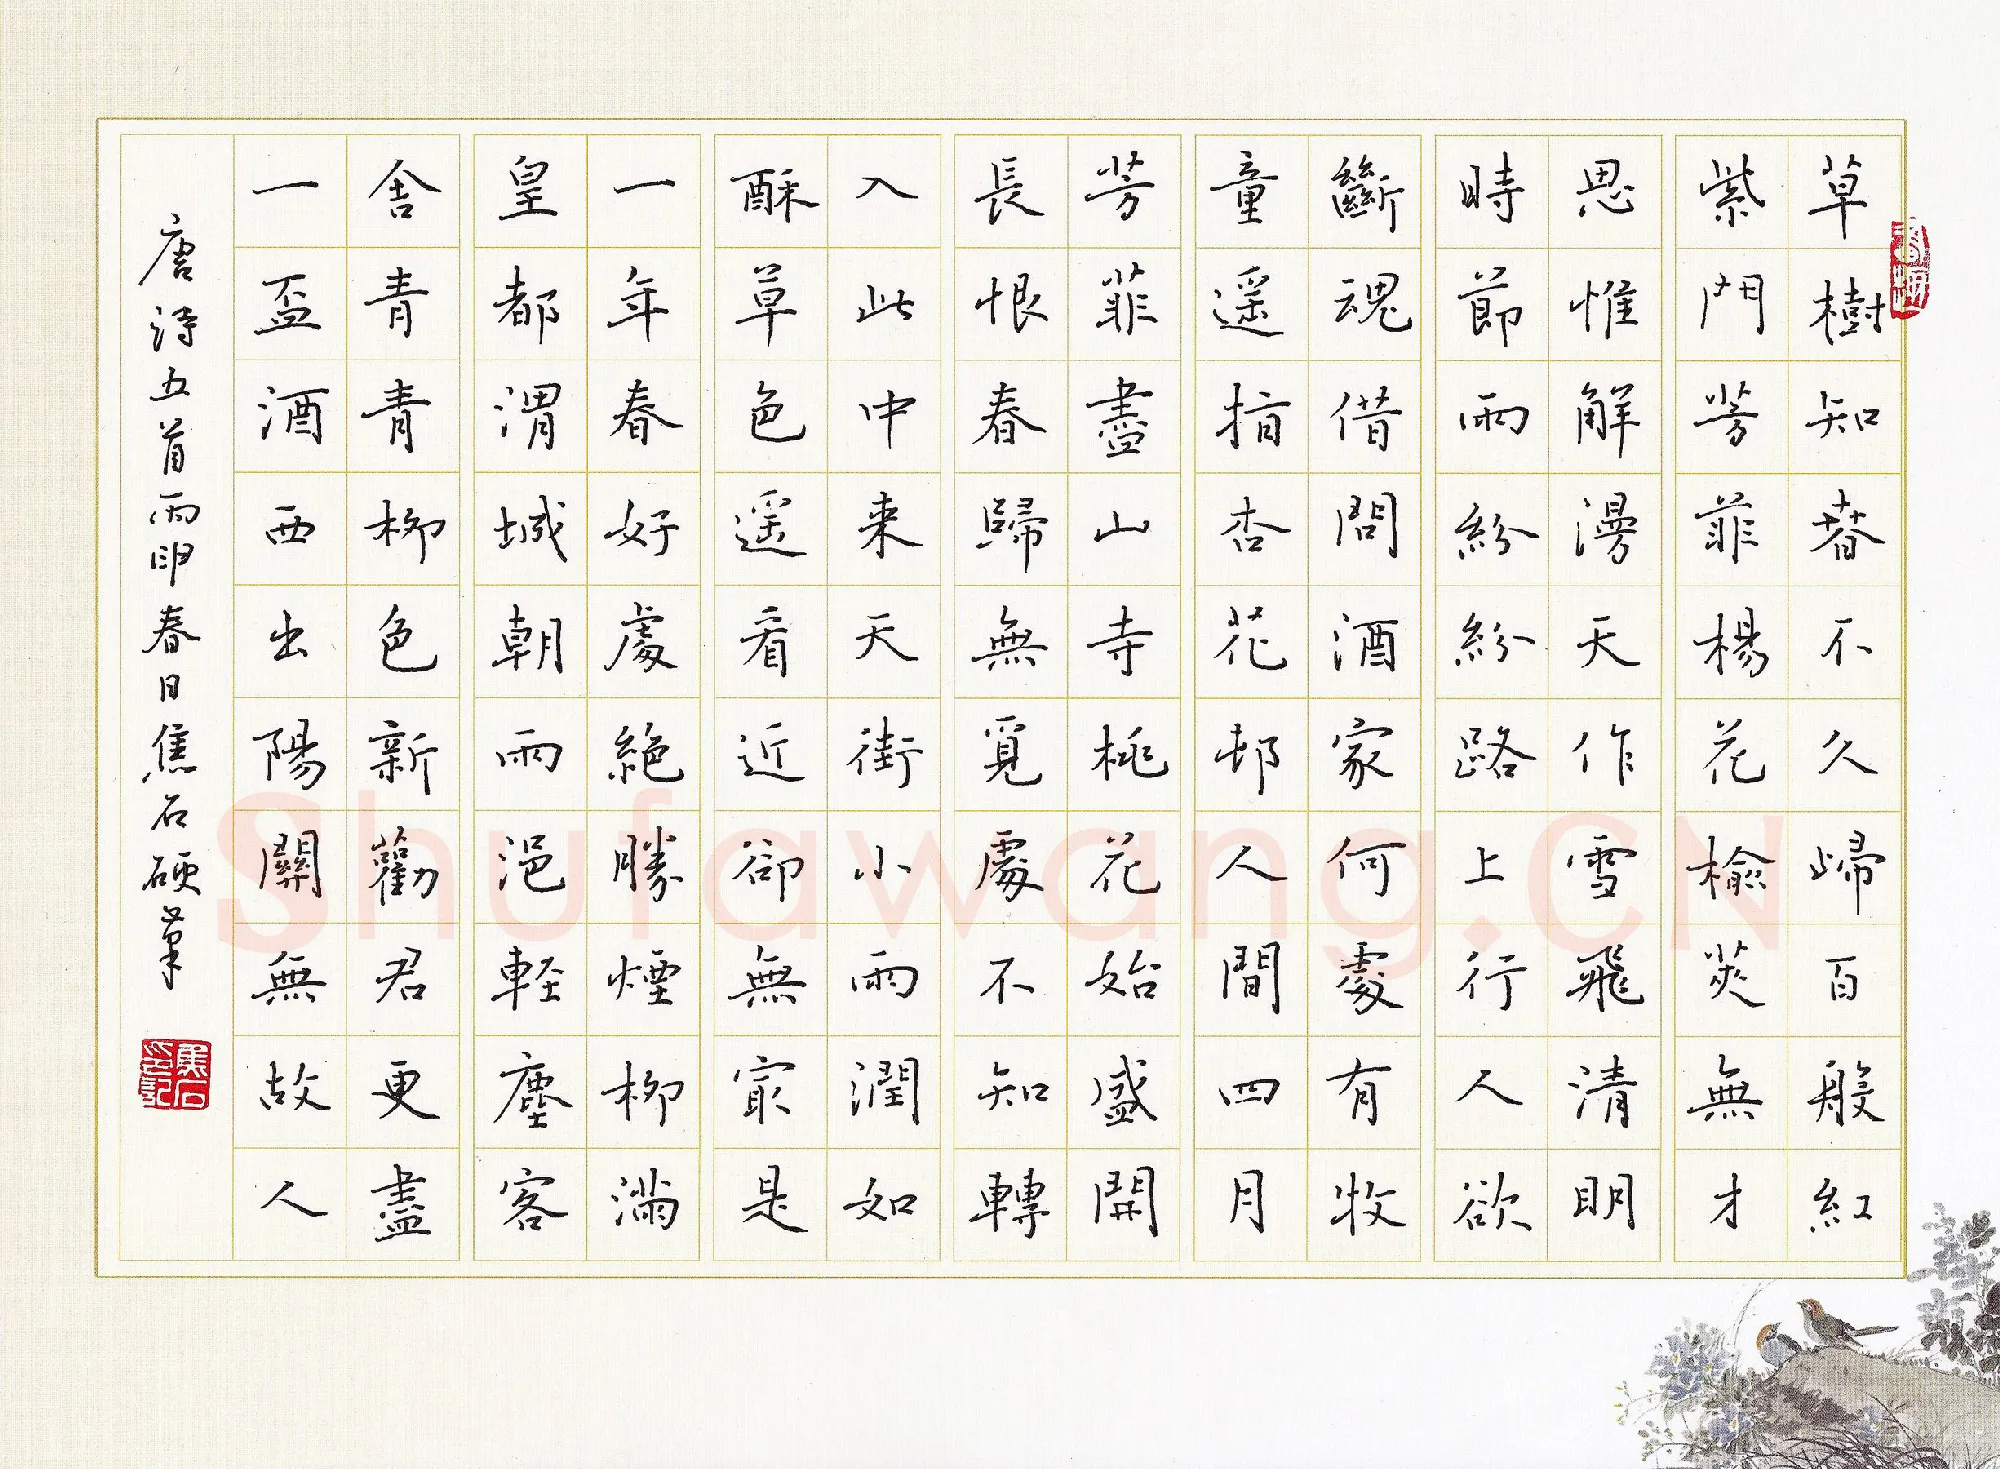 草樹知春不久歸百般紅
紫鬥芳菲楊花榆莢無才
思惟解漫天作雪飛清明
時節雨紛紛路上行人欲
斷魂借問酒家何處有牧
童遥指杏花邨人間四月
芳菲盡山寺桃花始盛開
長恨春歸無覓處不知轉
入此中来天街小雨潤如
酥草色遥看近卻無冣是
一年春好處絕勝煙柳滿
皇都渭城朝雨浥輕塵客
舍青青柳色新勸君更盡
一盃酒西出陽關無故人
唐詩五首丙申春日焦石硬筆
焦石印記
Shufawang.CN